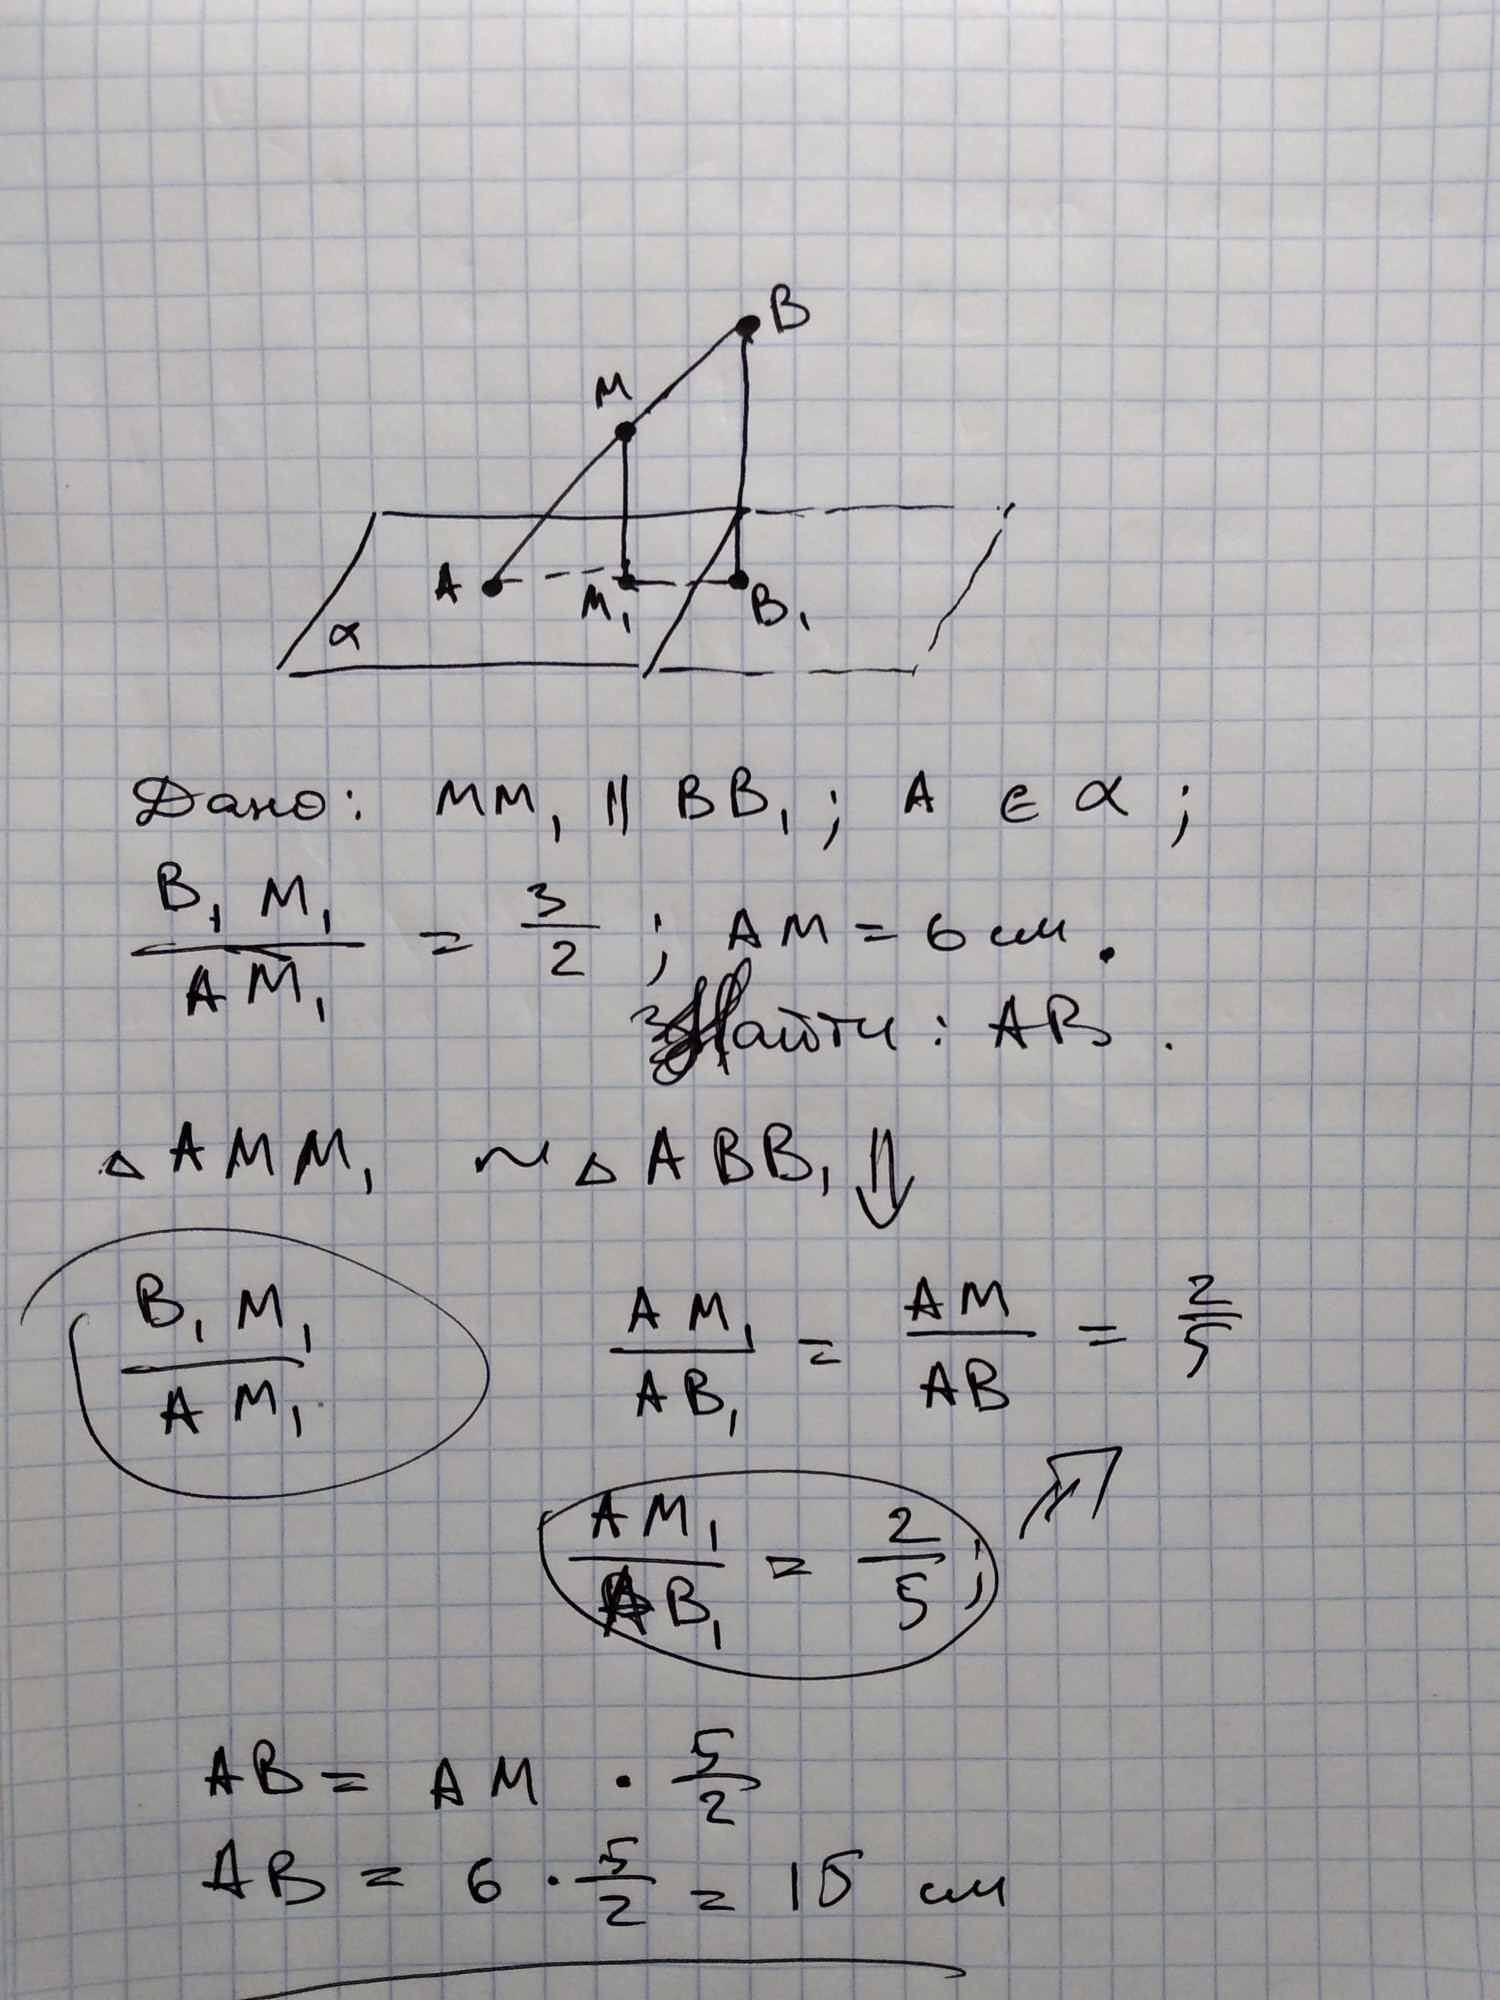 B
M
A M₁ B₁
α
Дано: MM₁ || BB₁; A ∈ α;
B₁M₁/AM₁ = 3/2; AM = 6 см.
Найти: AB.
△AMM₁ ~ △ABB₁ ⇓
B₁M₁/AM₁ AM₁/AB₁ = AM/AB = 2/5
AM₁/AB₁ = 2/5; ⇗
AB = AM · 5/2
AB = 6 · 5/2 = 15 см